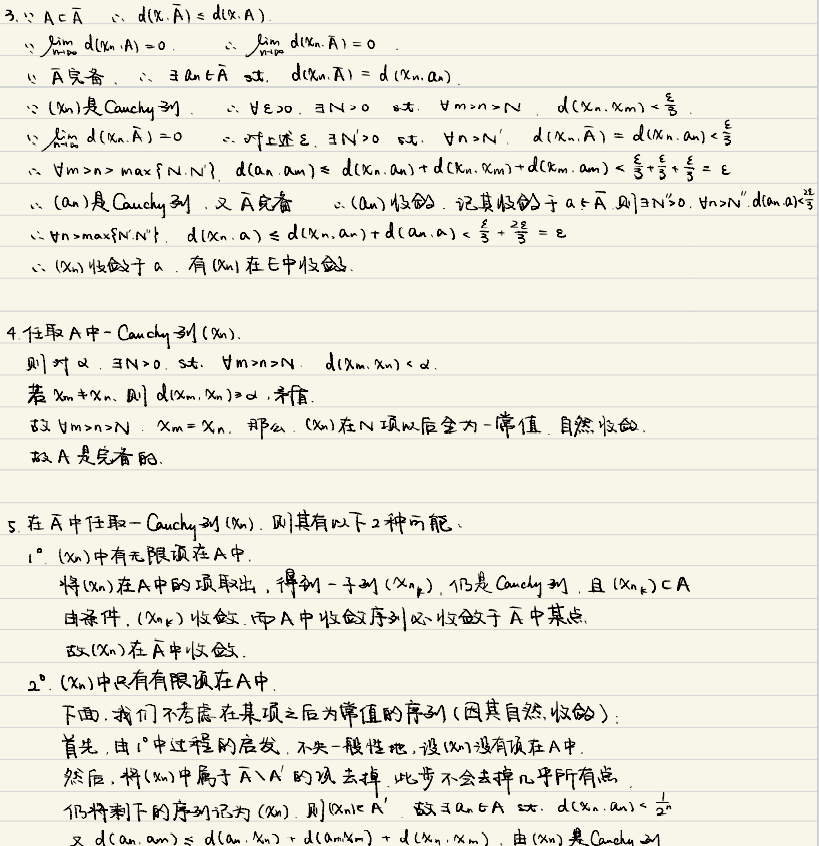 3. ∵ A⊂Ā ∴ d(x,Ā) ≤ d(x,A).
∵ lim_{n→∞} d(xn,A)=0. ∴ lim_{n→∞} d(xn,Ā)=0.
∵ Ā完备, ∴ ∃an∈Ā st. d(xn,Ā) = d(xn,an).
∵ (xn)是Cauchy列. ∴ ∀ε>0, ∃N>0 st. ∀m>n>N, d(xn,xm) < ε/3.
∵ lim_{n→∞} d(xn,Ā)=0 ∴ 对上述ε, ∃N'>0 st. ∀n>N', d(xn,Ā) = d(xn,an) < ε/3
∴ ∀m>n>max{N,N'}, d(an,am) ≤ d(xn,an)+d(xn,xm)+d(xm,am) < ε/3+ε/3+ε/3 = ε
∴ (an)是Cauchy列, 又Ā完备 ∴(an)收敛, 记其收敛于a∈Ā, 则∃N''>0, ∀n>N'', d(an,a)<2ε/3
∴∀n>max{N',N''}, d(xn,a) ≤ d(xn,an)+d(an,a) < ε/3 + 2ε/3 = ε
∴ (xn)收敛于a, 有(xn)在E中收敛.
4. 任取A中一Cauchy列(xn).
则对α, ∃N>0, st. ∀m>n>N, d(xm,xn)<α.
若xm≠xn, 则d(xm,xn)≥α, 矛盾.
故∀m>n>N, xm=xn, 那么, (xn)在N项以后全为一常值, 自然收敛.
故A是完备的.
5. 在Ā中任取一Cauchy列(xn), 则其有以下2种可能:
1° (xn)中有无限项在A中.
将(xn)在A中的项取出, 得到一子列(xnk), 仍是Cauchy列, 且(xnk)⊂A
由条件, (xnk)收敛, 而A中收敛序列必收敛于Ā中某点.
故(xn)在Ā中收敛.
2° (xn)中只有有限项在A中.
下面, 我们不考虑在某项之后为常值的序列(因其自然收敛):
首先, 由1°中过程的启发, 不失一般性地, 设(xn)没有项在A中.
然后, 将(xn)中属于Ā\A'的项去掉, 此步不会去掉几乎所有点
仍将剩下的序列记为(xn), 则(xn)⊂A' 故∃an∈A st. d(xn,an)<1/2ⁿ
又d(an,am) ≤ d(an,xn)+d(am,xm)+d(xn,xm), 由(xn)是Cauchy列